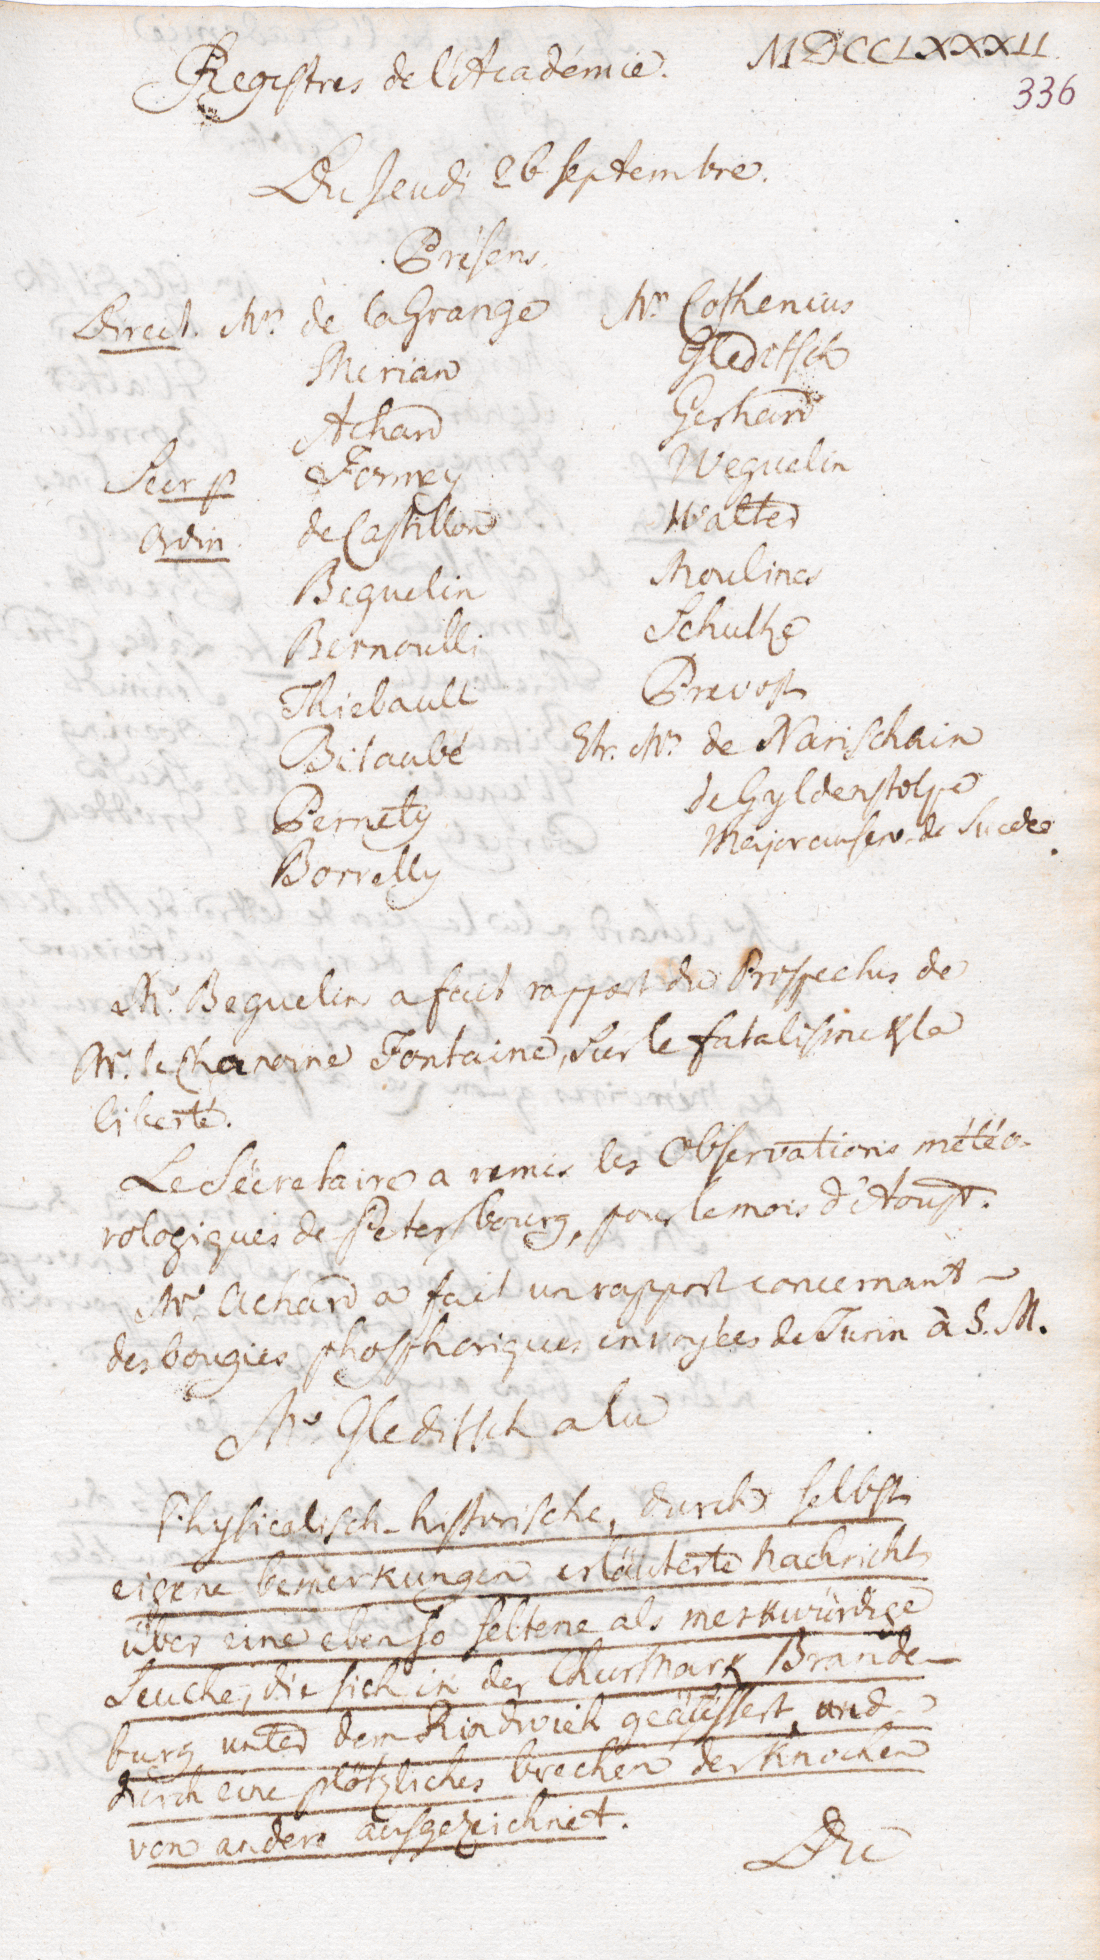 Registres de l'Académie. MDCCLXXXII.
336
Du Jeudi 26 Septembre.
Présens.
Direct. Mrs de la Grange
Merian
Achard
Secr. p. Formey
Ordin de Castillon
Beguelin
Bernoulli
Thiebault
Bitaubé
Pernety
Borrelly
Mrs Cothenius
Gleditsch
Gerhard
Weguelin
Walter
Moulines
Schulze
Prevost
Etr. Mrs de Narischkin
de Gyldenstolpe
Major au serv. de Suede.
Mr. Beguelin a fait rapport du Prospectus de
Mr. le Chanoine Fontaine, sur le fatalisme & la
liberté.
Le Sécretaire a remis les Observations météo-
rologiques de Petersbourg, pour le mois d'Aoust.
Mr. Achard a fait un rapport concernant
des bougies phosphoriques envoyées de Turin à S. M.
Mr. Gleditsch a lu
Physicalisch-historische, durch selbst
eigene bemerkungen erläuterte Nachricht
über eine eben so seltene als merkwürdige
Seuche, die sich in der ChurMark Brande-
burg unter dem Rindvieh geäussert, und
durch eine plötzliches brechen der Knochen
von andern ausgezeichnet.
Du